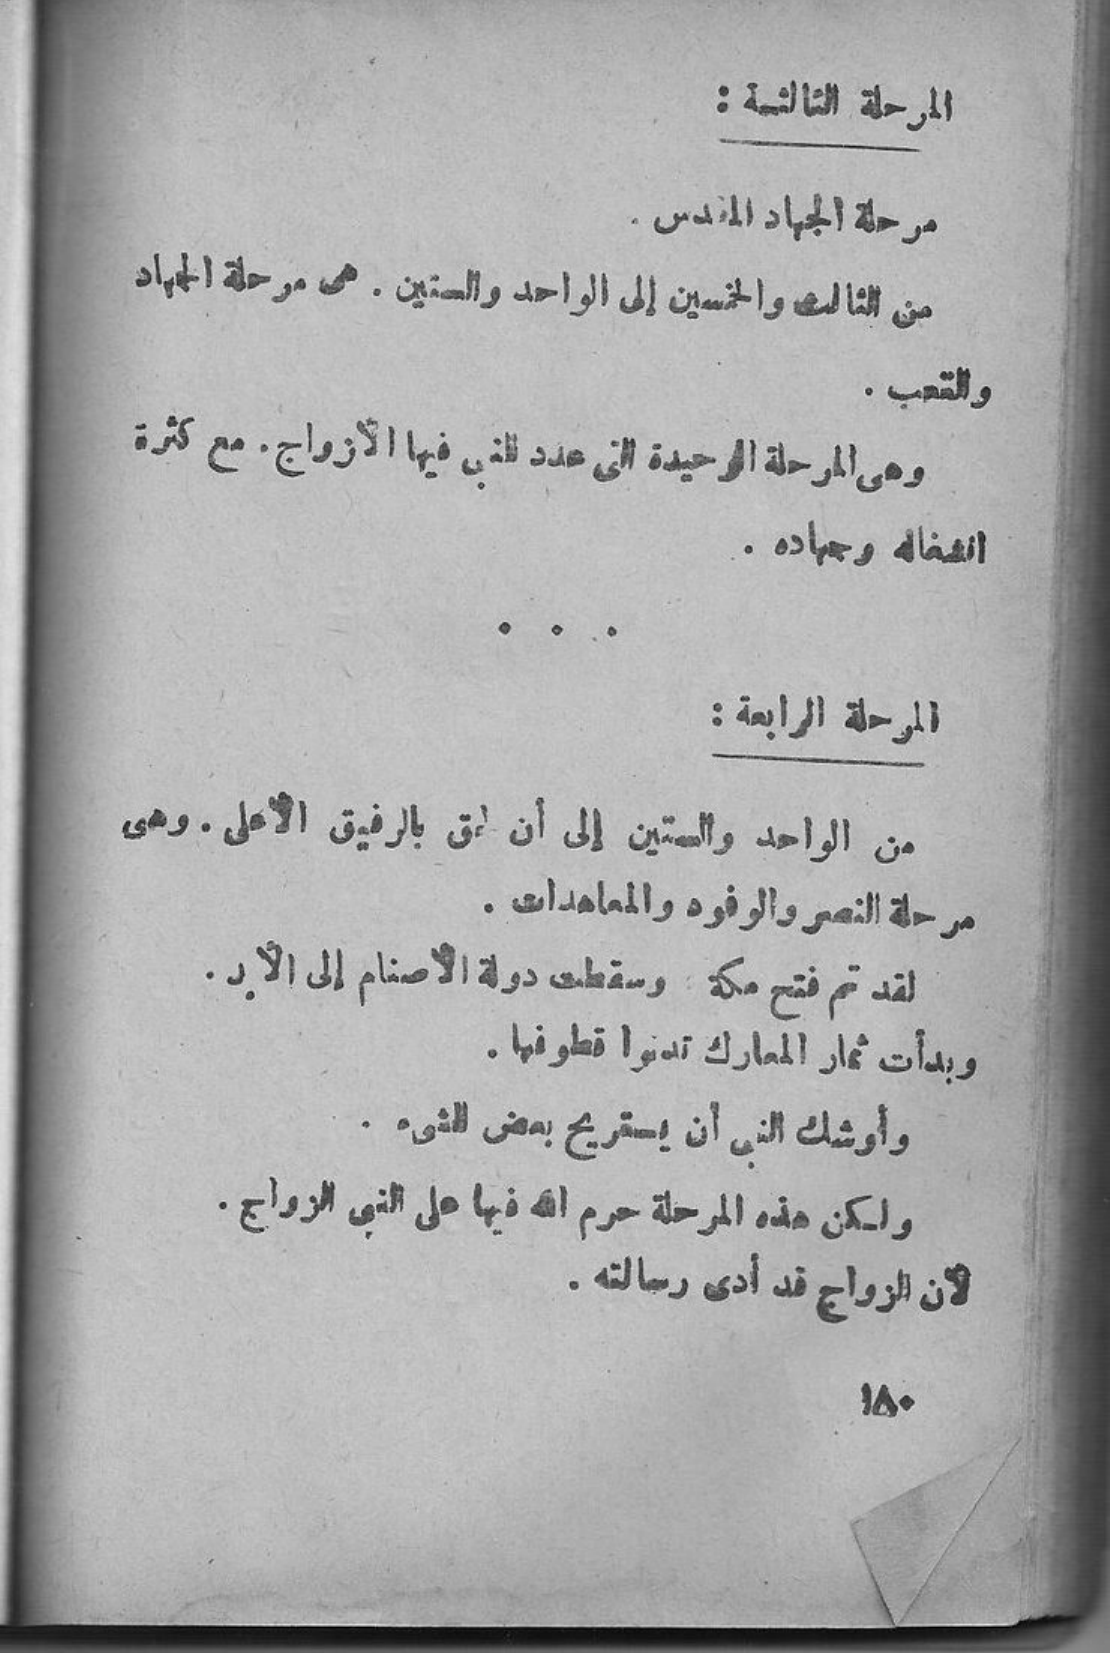 المرحلة الثالثة :
مرحلة الجهاد المقدس .
من الثالث والخمسين إلى الواحد والستين . هى مرحلة الجهاد
والتعب .
وهى المرحلة الوحيدة التى عدد للنبى فيها الأزواج . مع كثرة
انشغاله وجهاده .
. . .
المرحلة الرابعة :
من الواحد والستين إلى أن لحق بالرفيق الأعلى . وهى
مرحلة النصر والوفود والمعاهدات .
لقد تم فتح مكة وسقطت دولة الأصنام إلى الأبد .
وبدأت ثمار المعارك تدنوا قطوفها .
وأوشك النبى أن يستريح بعض الشىء .
ولكن هذه المرحلة حرم الله فيها على النبى الزواج .
لأن الزواج قد أدى رسالته .
١٨٠